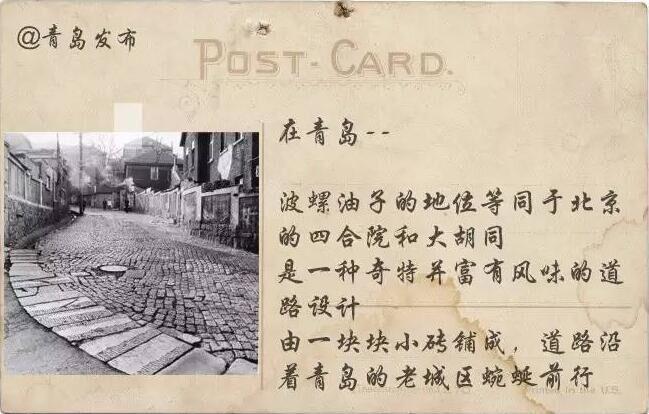 @青岛发布
POST-CARD.
在青岛--
波螺油子的地位等同于北京
的四合院和大胡同
是一种奇特并富有风味的道
路设计
由一块块小砖铺成，道路沿
着青岛的老城区蜿蜒前行
Printed in the U.S.